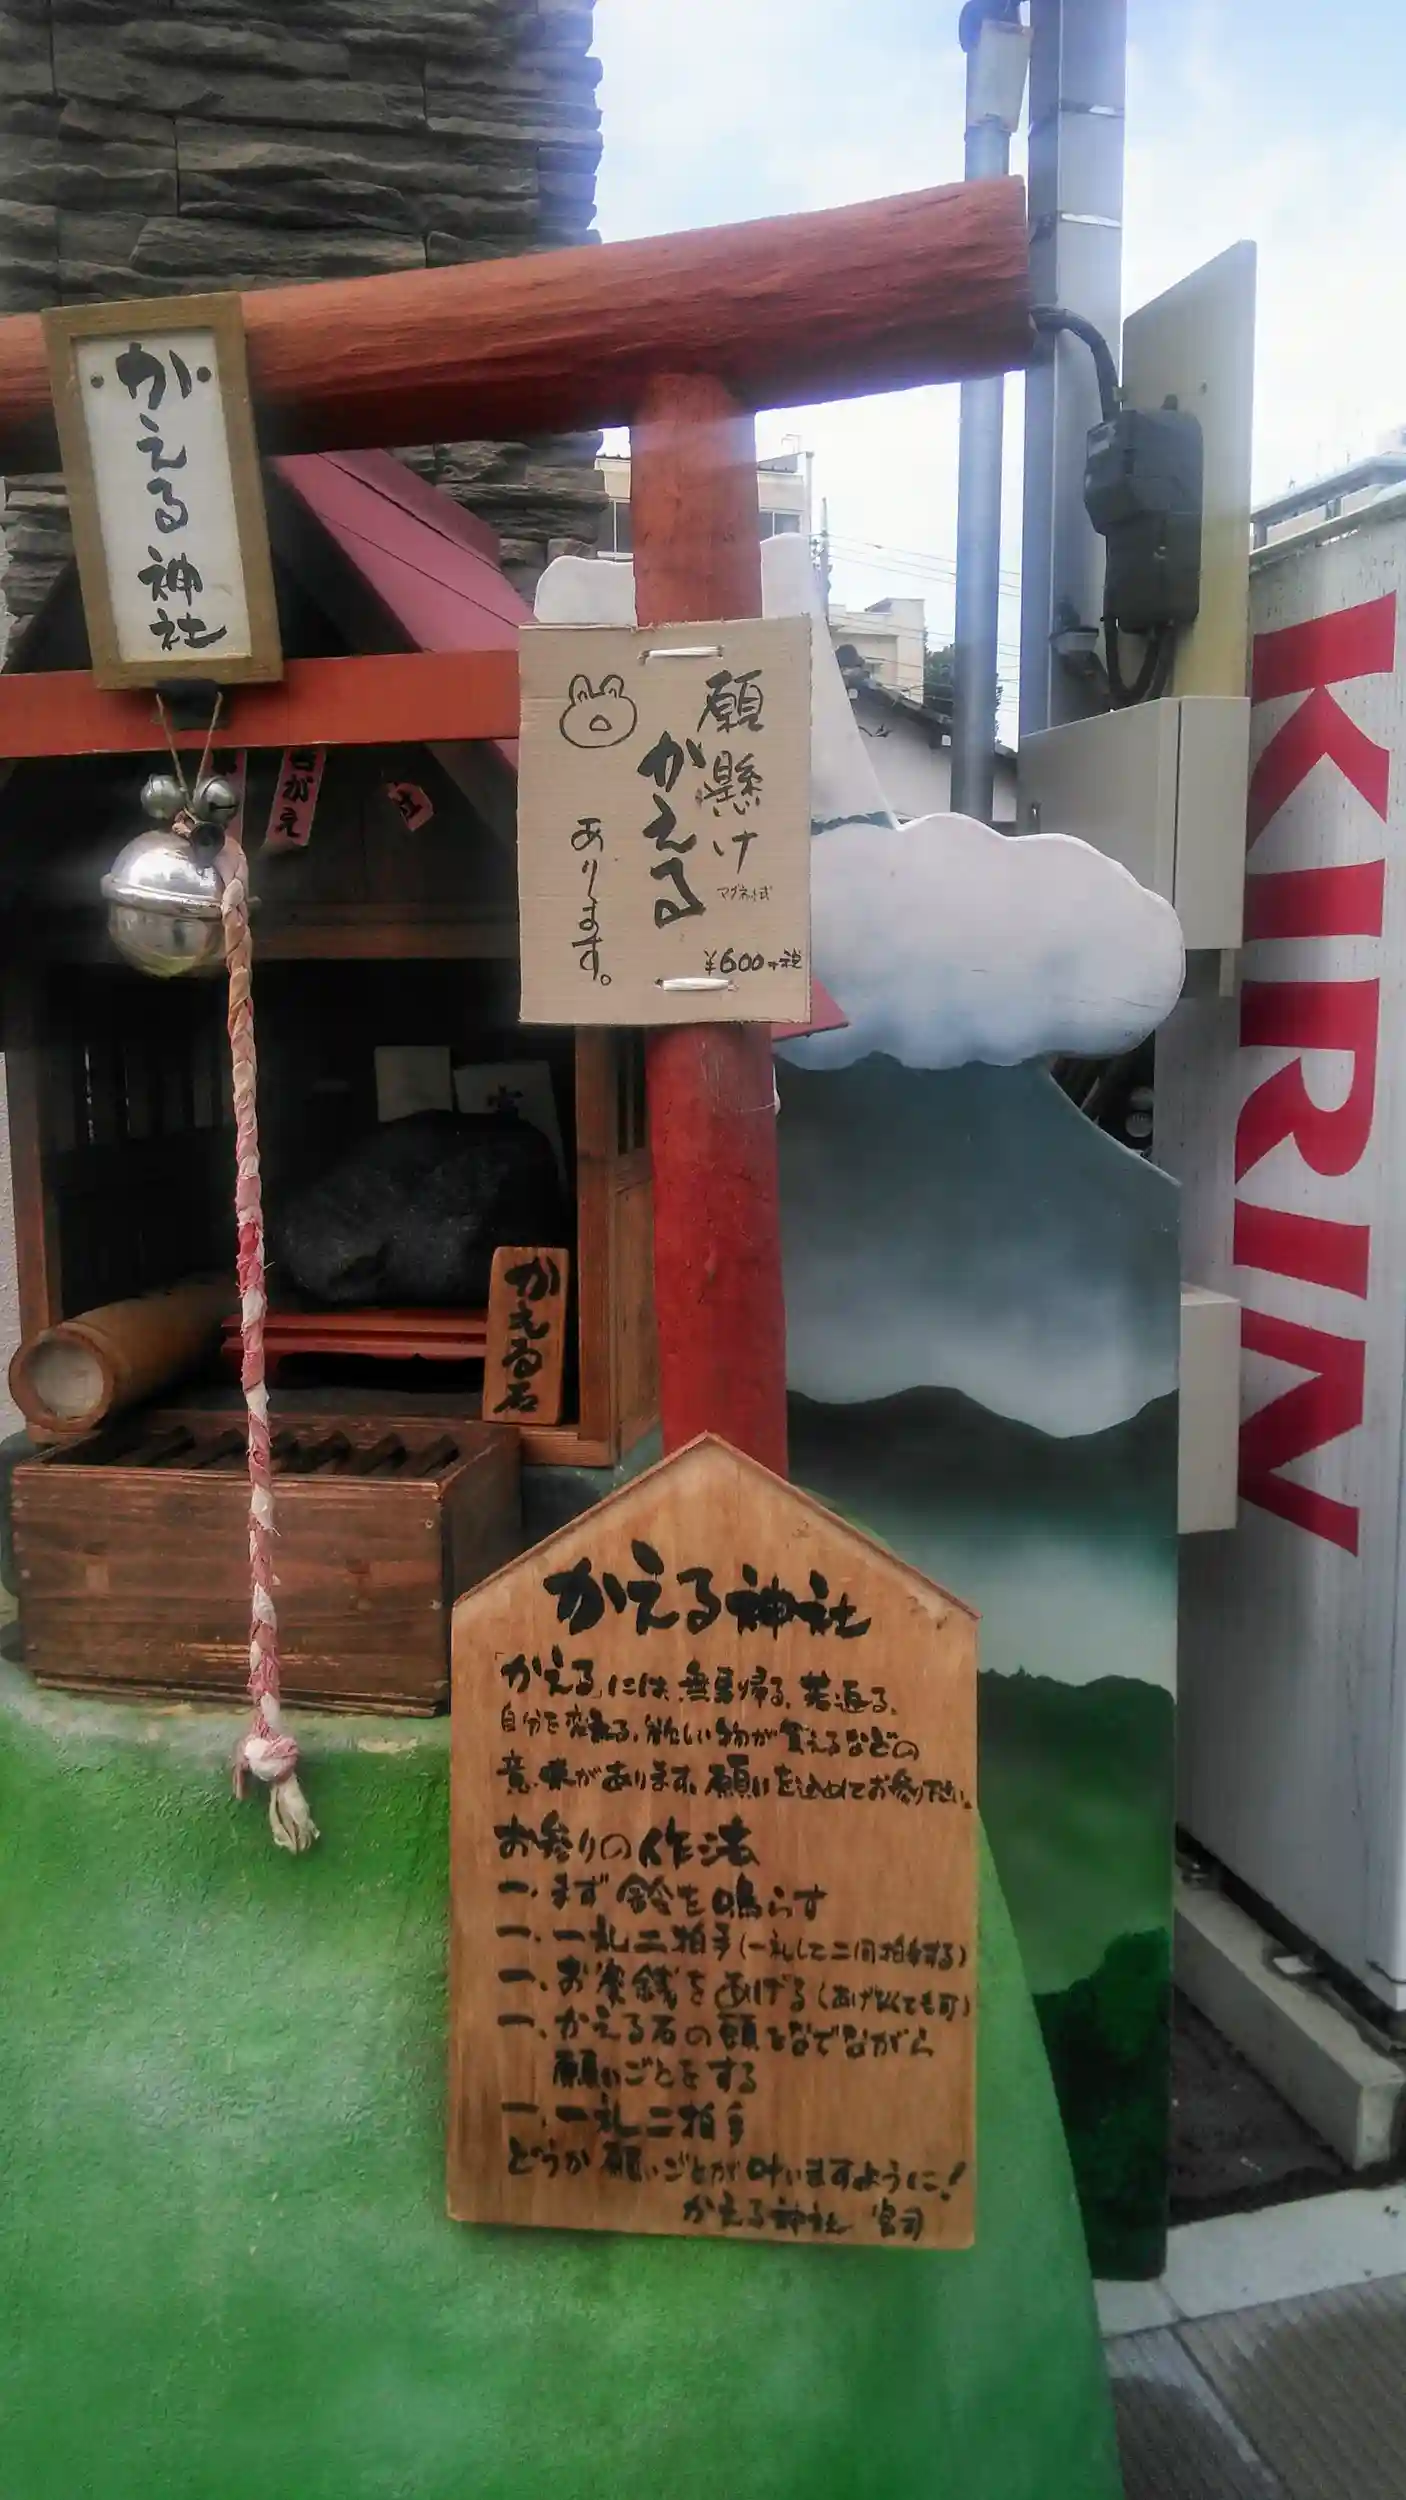 かえる神社
願懸け
かえる
マグネット式
¥600+税
あります。
かえる石
KIRIN
かえる神社
「かえる」には、無事帰る、若返る、
自分を変える、欲しい物が買えるなどの
意味があります。願いを込めてお参り下さい。
お参りの作法
一、まず鈴を鳴らす
一、一礼二拍手(一礼して二回拍手する)
一、お賽銭をあげる(あげなくても可)
一、かえる石の頭をなでながら
願いごとをする
一、一礼二拍手
どうか願いごとが叶いますように!
かえる神社 宮司